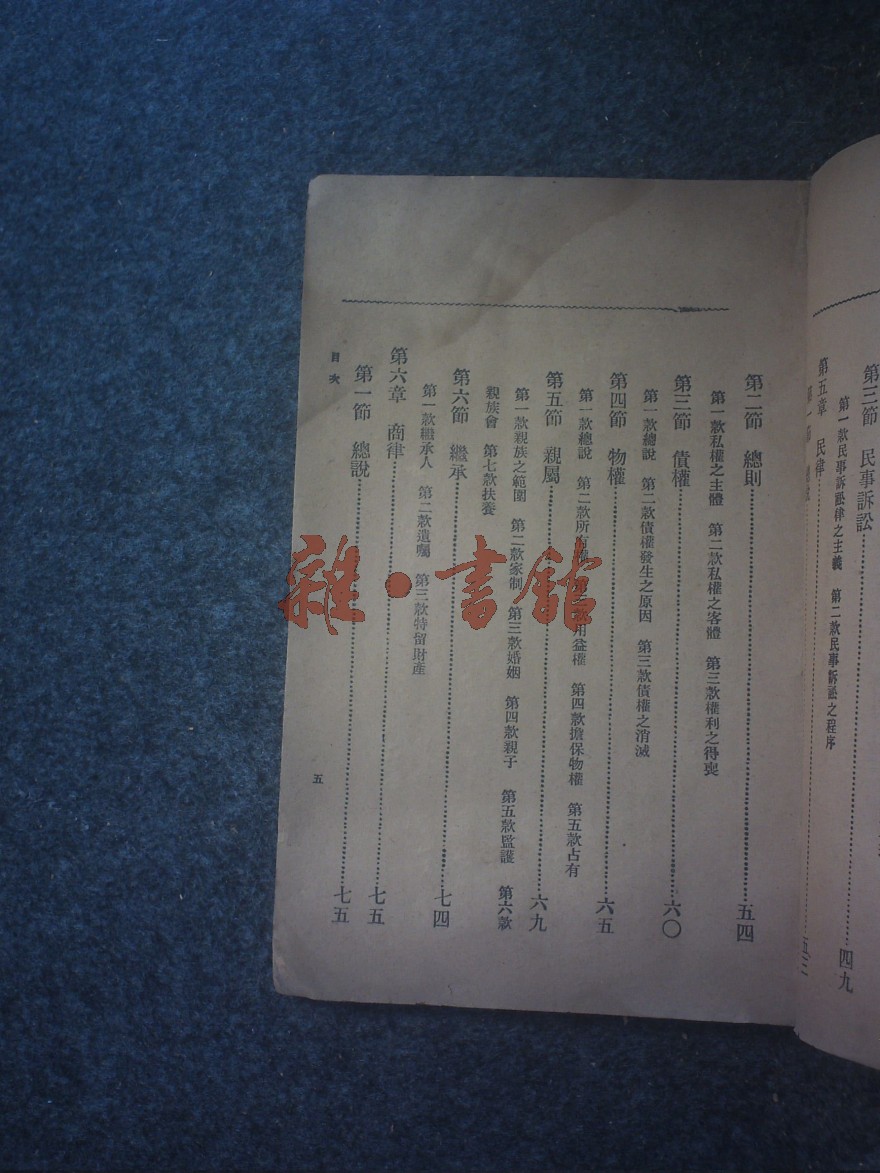 第三節 民事訴訟……四九
第一款民事訴訟律之主義 第二款民事訴訟之程序
第五章 民律……五三
第二節 總則……五四
第一款私權之主體 第二款私權之客體 第三款權利之得喪
第三節 債權……六〇
第一款總說 第二款債權發生之原因 第三款債權之消滅
第四節 物權……六五
第一款總說 第二款所有權 用益權 第四款擔保物權 第五款占有
第五節 親屬……六九
第一款親族之範圍 第二款家制 第三款婚姻 第四款親子 第五款監護 第六款
親族會 第七款扶養
第六節 繼承……七四
第一款繼承人 第二款遺囑 第三款特留財產
第六章 商律……七五
第一節 總說……七五
目次
五
雜·書館